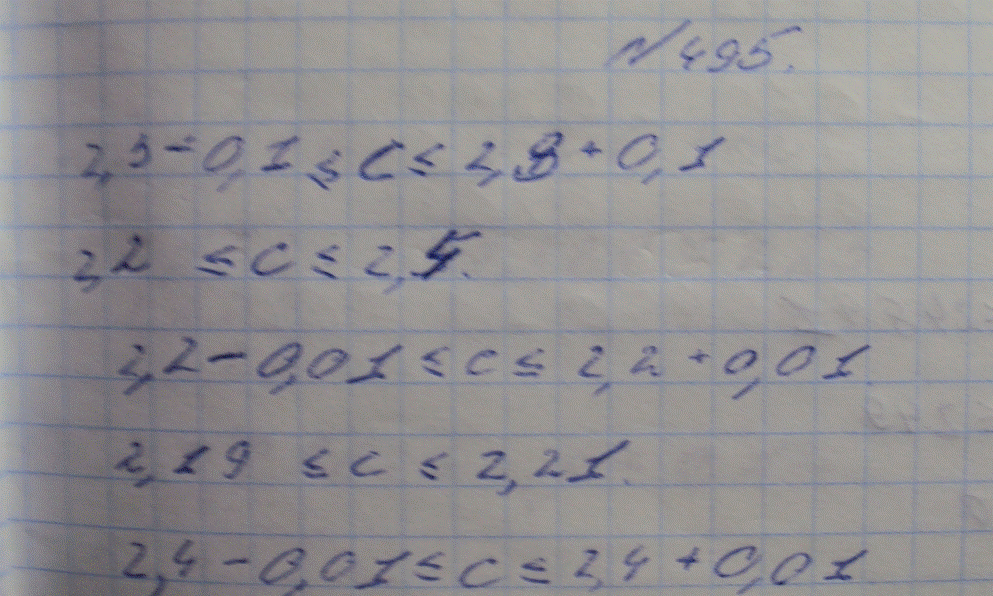 N 495.
2,3 - 0,1 ≤ C ≤ 2,3 + 0,1
2,2 ≤ C ≤ 2,4.
2,2 - 0,01 ≤ C ≤ 2,2 + 0,01.
2,19 ≤ C ≤ 2,21.
2,4 - 0,01 ≤ C ≤ 2,4 + 0,01